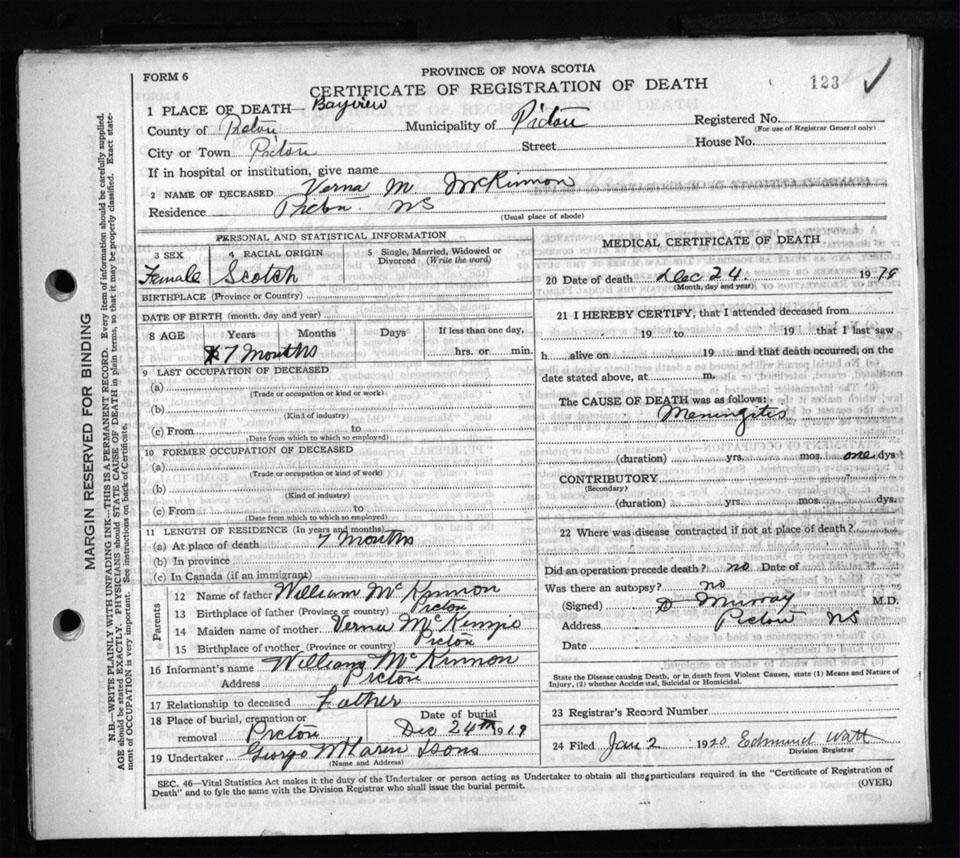 FORM 6
PROVINCE OF NOVA SCOTIA
CERTIFICATE OF REGISTRATION OF DEATH
123
1 PLACE OF DEATH— Bayview
County of Pictou Municipality of Pictou Registered No.
(For use of Registrar General only)
City or Town Pictou Street House No.
If in hospital or institution, give name
2 NAME OF DECEASED Verna M McKinnon
Residence Pictou NS
(Usual place of abode)
PERSONAL AND STATISTICAL INFORMATION
3 SEX 4 RACIAL ORIGIN 5 Single, Married, Widowed or Divorced (Write the word)
Female Scotch
BIRTHPLACE (Province or Country)
DATE OF BIRTH (month, day and year)
8 AGE Years Months Days If less than one day,
7 Months hrs. or min.
9 LAST OCCUPATION OF DECEASED
(a)
(Trade or occupation or kind or work)
(b)
(Kind of industry)
(c) From to
(Date from which to which so employed)
10 FORMER OCCUPATION OF DECEASED
(a)
(Trade or occupation or kind of work)
(b)
(Kind of industry)
(c) From to
(Date from which to which so employed)
11 LENGTH OF RESIDENCE (In years and months)
(a) At place of death 7 Months
(b) In province
(c) In Canada (if an immigrant)
Parents
12 Name of father William McKinnon
13 Birthplace of father (Province or country) Pictou
14 Maiden name of mother Verna
15 Birthplace of mother (Province or country) Pictou
16 Informant's name William McKinnon
Address Pictou
17 Relationship to deceased Father
18 Place of burial, cremation or removal Pictou Date of burial Dec 24th 1919
19 Undertaker George McLaren & Sons
(Name and Address)
MEDICAL CERTIFICATE OF DEATH
20 Date of death Dec 24. 19
(Month, day and year)
21 I HEREBY CERTIFY, that I attended deceased from
19 to 19 that I last saw
h alive on 19 and that death occurred, on the
date stated above, at m.
The CAUSE OF DEATH was as follows:
Meningitis
(duration) yrs. mos. one dys.
CONTRIBUTORY
(Secondary)
(duration) yrs. mos. dys.
22 Where was disease contracted if not at place of death?
Did an operation precede death? no Date of
Was there an autopsy? no
(Signed) D Murray M.D.
Address Pictou NS
Date
State the Disease causing Death, or in death from Violent Causes, state (1) Means and Nature of
Injury, (2) whether Accidental, Suicidal or Homicidal.
23 Registrar's Record Number
24 Filed Jan 2 1920 Edmund Watt
Division Registrar
SEC. 46—Vital Statistics Act makes it the duty of the Undertaker or person acting as Undertaker to obtain all the particulars required in the "Certificate of Registration of
Death" and to file the same with the Division Registrar who shall issue the burial permit.
(OVER)
MARGIN RESERVED FOR BINDING
N.B.—WRITE PLAINLY WITH UNFADING INK—THIS IS A PERMANENT RECORD. Every item of information should be carefully supplied.
AGE should be stated EXACTLY. PHYSICIANS should STATE CAUSE OF DEATH in plain terms, so that it may be properly classified. Exact state-
ment of OCCUPATION is very important. See instructions on back of Certificate.